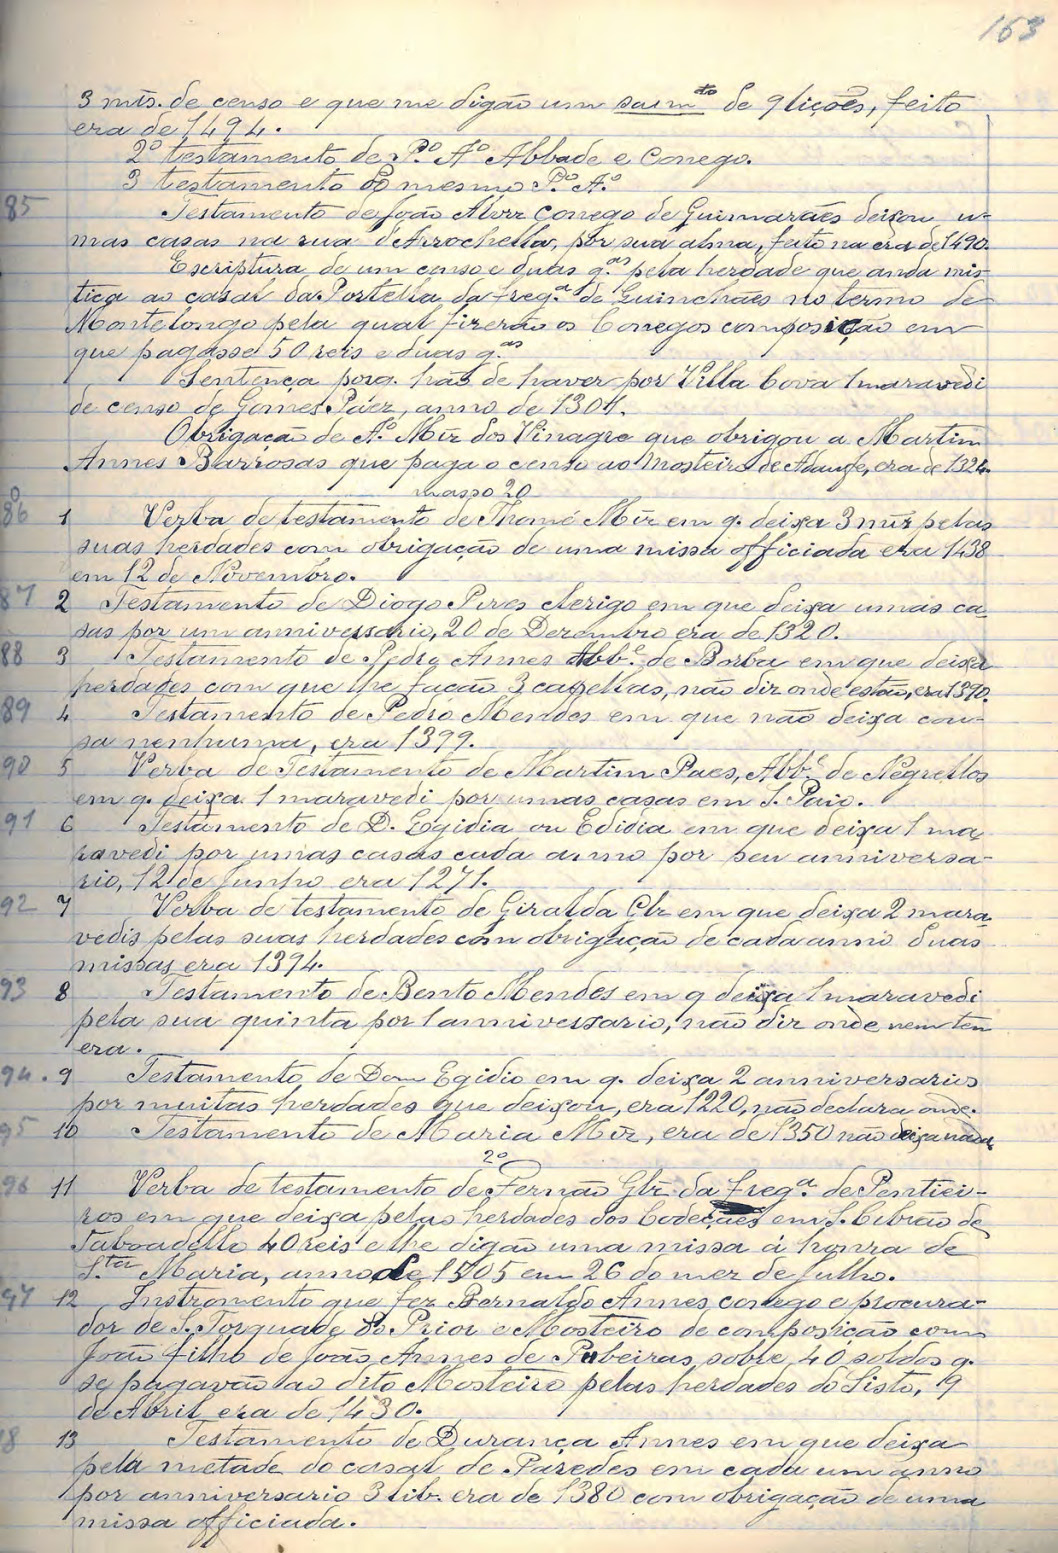 163
3 mrs. de censo e que me digão um saimto de 9 lições, feito
era de 1494.
2º testamento de P.º A.º Abbade e Conego.
3 testamento do mesmo P.º A.º
85 Testamento de João Alvrz Conego de Guimarães deixou u-
mas casas na rua d'Arrochella, por sua alma, feito na era de 1490.
Escriptura de um censo e duas g.as pela herdade que anda mis-
tica ao casal da Portella da freg.a de Guinchães no termo de
Montelongo pela qual fizerão os Conegos composição em
que pagasse 50 reis e duas g.as
Sentença porq. hão de haver por Villa Cova 1 maravedi
de censo de Gomes Páez, anno de 1304.
Obrigação de A.º Miz dos Vinagre que obrigou a Martim
Annes Barrosas que paga o censo ao Mosteiro de Adaufe, era de 1324.
masso 20
86 1 Verba de testamento de Thomé Miz em q. deixa 3 mrs pelas
suas herdades com obrigação de uma missa officiada era 1438
em 12 de Novembro.
87 2 Testamento de Diogo Pires clerigo em que deixa umas ca-
sas por um anniversario, 20 de Dezembro era de 1320.
88 3 Testamento de Pedro Annes Abb.e de Borba em que deixa
herdades com que lhe fação 3 capellas, não diz onde estão, era 1370.
89 4 Testamento de Pedro Mendes em que não deixa cou-
sa nenhuma, era 1399.
90 5 Verba de Testamento de Martim Paes, Abb.e de Negrellos
em q. deixa 1 maravedi por umas casas em S. Paio.
91 6 Testamento de D. Egidia ou Edidia em que deixa 1 ma-
ravedi por umas casas cada anno por seu anniversa-
rio, 12 de Junho era 1271.
92 7 Verba de testamento de Giralda Glz em que deixa 2 mara-
vedis pelas suas herdades com obrigação de cada anno duas
missas era 1394.
93 8 Testamento de Bento Mendes em q deixa 1 maravedi
pela sua quinta por 1 anniversario, não diz onde nem ten
era.
94. 9 Testamento de Dom Egidio em q. deixa 2 anniversarios
por muitas herdades que deixou, era 1220, não declara onde.
95 10 Testamento de Maria Miz, era de 1350 não deixa nada
2º
96 11 Verba de testamento de Fernão Glz da freg.a de Pentiei-
ros em que deixa pelas herdades dos Codeçaes em S. Cibrão de
Taboadello 40 reis e lhe digão uma missa á honra de
S.ta Maria, anno de 1505 em 26 do mez de Julho.
97 12 Instromento que fez Bernaldo Annes, conego e procura-
dor de S. Torquade do Prior e Mosteiro de composição com
João filho de João Annes de Rubeiras, sobre 40 soldos q.
se pagavão ao dito Mosteiro pelas herdades do Sisto, 19
de Abril era de 1430.
98 13 Testamento de Durança Annes em que deixa
pela metade do casal de Paredes em cada um anno
por anniversario 3 lib. era de 1380 com obrigação de uma
missa officiada.